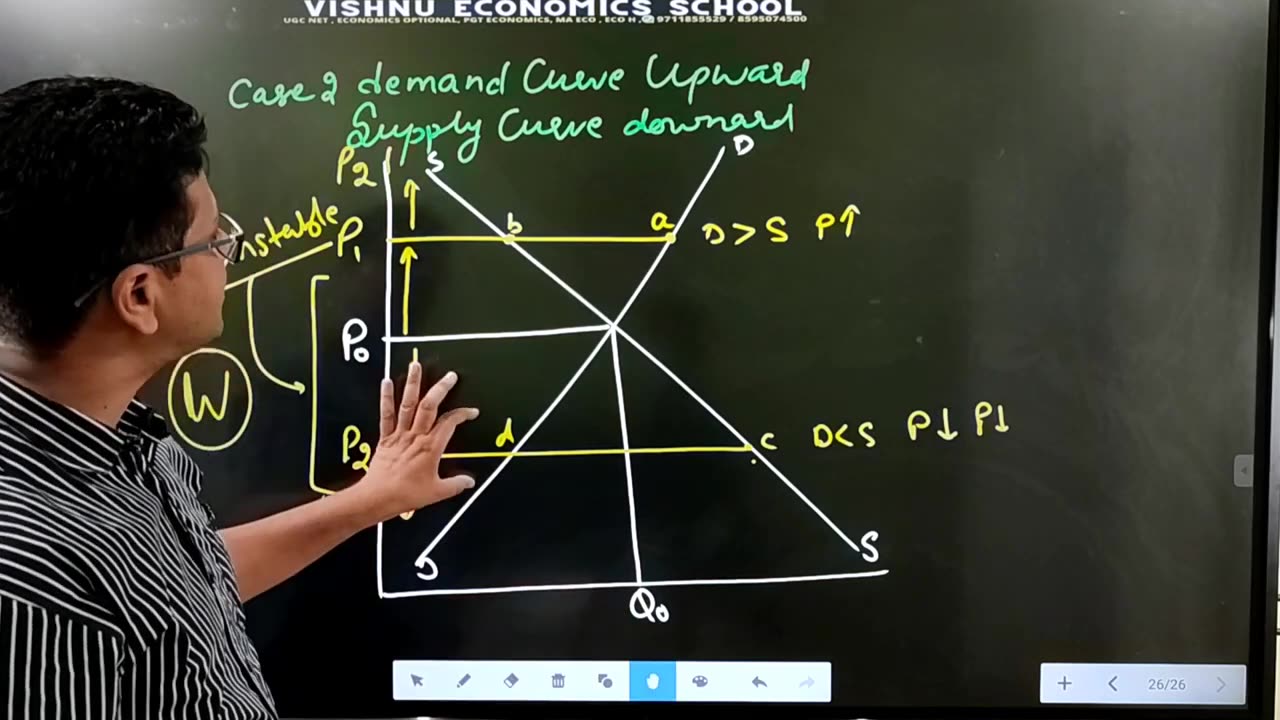 VISHNU ECONOMICS SCHOOL
UGC NET , ECONOMICS OPTIONAL, PGT ECONOMICS, MA ECO , ECO H , 9711855529 / 8595074500
Case 2 demand Curve Upward
Supply Curve downard
P2
S
D
nstable
P1
b
a
D > S P↑
P0
W
P2
d
c
D<S P↓ P↓
D
S
Q0
26/26